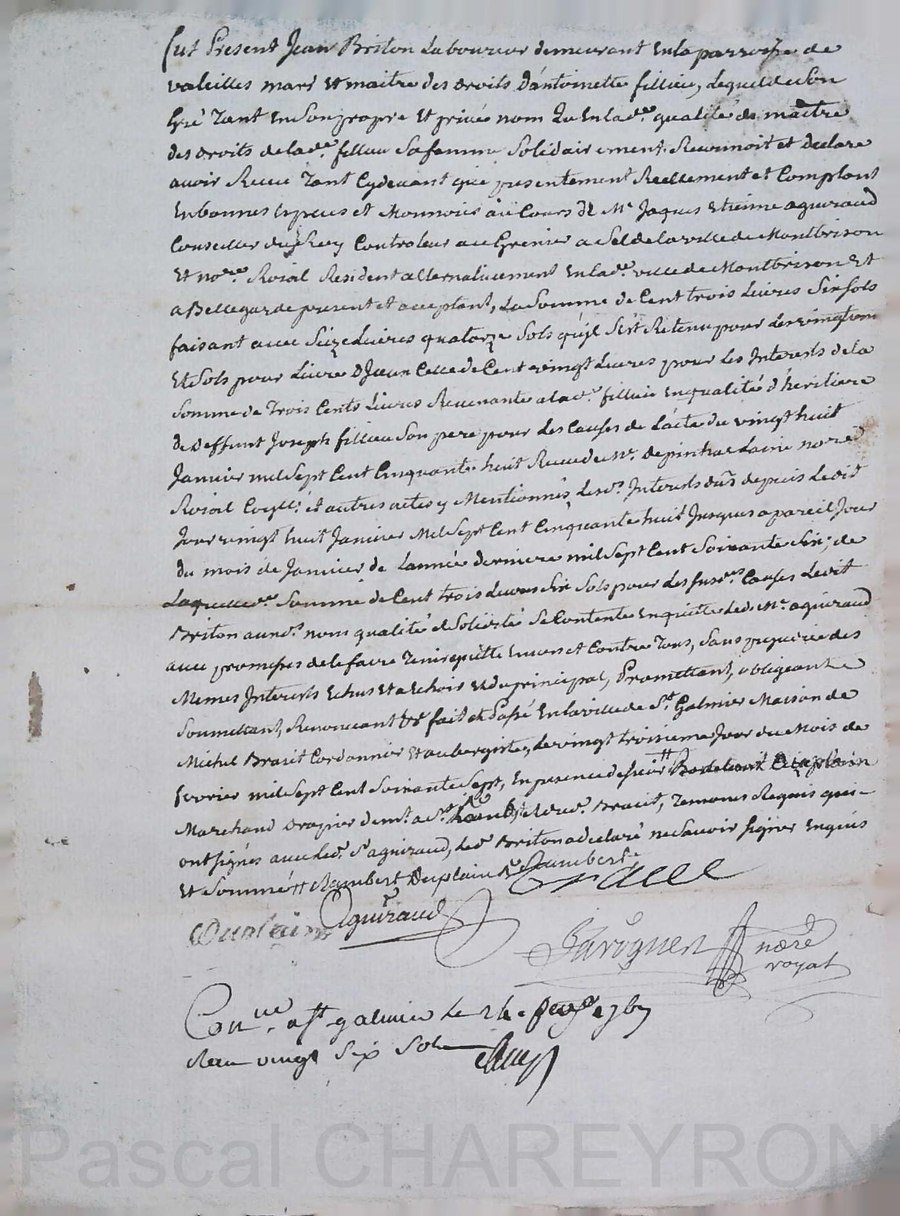 fut Present Jean Briton Laboureur demeurant En la parroisse de
valeilles mary Et maitre des droits d'antoinette fillieu, Lequel de Son
Gré Tant En Son propre Et privé nom Qu'En lad.e qualité de maitre
des droits de lad.e fillieu Sa femme Solidairement Reconnoit et Declare
avoir Receu Tant Cydevant que presentement Reellement et Comptant
En bonnes Especes et Monnoies au Cours de M.e Jaques Etienne aguiraud
Conseiller du Roy Controleur au Grenier a Sel de la ville de Montbrison
Et no.re Roial Resident alternativement En lad.e ville de Montbrison Et
a Bellegarde present et aceptant, La Somme de Cent trois Livres Six Sols
faisant avec Seize Livres quatorze Sols qu'il S'est Retenu pour Les vingtiem
Et Sols pour Livre D'Iceux Celle de Cent vingt Livres pour les Interests de la
Somme de Trois Cents Livres Revenante a lad.e fillieu En qualité d'heritiere
de Deffunt Joseph fillieu Son pere pour Les Causes de L'acte du vingt huit
Janvier mil Sept Cent Cinquante huit Receu de M.e depinhac Laine no.re
Roial et autres actes y Mentionnés, Lesd. Interests dus depuis Ledit
Jour vingt huit Janvier Mil Sept Cent Cinquante huit Jusques a pareil Jour
du mois de Janvier de L'année derniere mil Sept Cent Soixante Six; de
Laquelle Somme de Cent trois Livres Six Sols pour Les Causes Ledit
Briton aux d. nom qualité et Soliérté Se Contente En quitte led. M.e aguiraud
avec promesses de le faire Tenir quitte Envers et Contre Tous, Sans prejudice des
Memes Interests Echus Et a Echoir Et du principal, Promettant, obligeant
Soumettant, Renonceant fait et Passé En la ville de S.t Galmier Maison de
Michel Brait Cordonnier Et aubergiste, Le vingt troisieme Jour du Mois de
fevrier mil Sept Cent Soixante Sept, En presence de Sieur
Marchand drapier dem.t a S.t Et dud. Brait, Temoins Requis qui
ont Signés avec Led. S.r aguiraud, Led. Briton a declaré ne Scavoir Signer Enquis
Et Sommé Rambert Duplain de S.t Rambert
Duplain Aguiraud
notre
royal
Con.lle a S.t galmier le 24
Recu vingt Six Sols